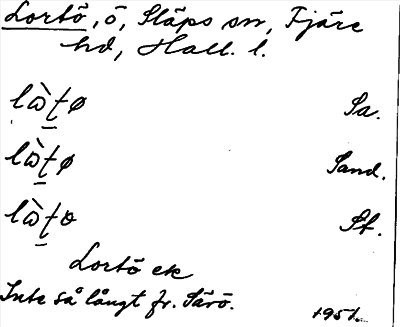 Lortö, ö, Släps sn, Fjäre
hd, Hall. l.
lὼt̠ø Sa.
lὼt̠ø Sand.
lὼt̠o St.
Lortö ek
Inte så långt fr. Särö.
1951.